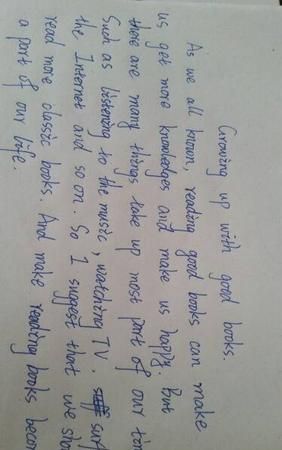 Growing up with good books.
As we all known, reading good books can make
us get more knowledges and make us happy. But
there are many things take up most part of our tim
Such as listening to the music, watching TV. surf
the Internet and so on. So I suggest that we sho
read more classic books. And make reading books becom
a part of our life.